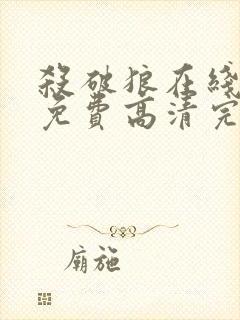 殺破狼在綫
免費高清完
廟施